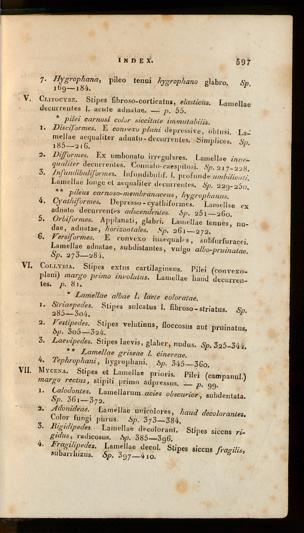 INDEX. 597
7. Hygrophana, pileo tenui hygrophano glabro. Sp.
169—184.
V. CLITOCYBE. Stipes fibroso-corticatus, elasticus. Lamellae
decurrentes l. acute adnatae. — p. 55.
* pilei carnosi color siccitate immutabilis.
1. Disciformes. E convexo plani depressive, obtusi. La-
mellae aequaliter adnato-decurrentes. Simplices. Sp.
185—216.
2. Difformes. Ex umbonato irregulares. Lamellae inae-
qualiter decurrentes. Connato-caespitosi. Sp. 217-228.
3. Infundibuliformes. Infundibulif. l. profunde umbilicati,
Lamellae longe et aequaliter decurrentes. Sp. 229-250.
** pileus carnoso-membranaceus, hygrophanus.
4. Cyathiformes. Depresso-cyathiformes. Lamellae ex
adnato decurrentes adscendentes. Sp. 251—260.
5. Orbiformes. Applanati, glabri. Lamellae tenues, nu-
dae, adnatae, horizontales. Sp. 261—272.
6. Versiformes. E convexo inaequales, subfurfuracei.
Lamellae adnatae, subdistantes, vulgo albo-pruinatae.
Sp. 273—284.
VI. COLLYBIA. Stipes extus cartilagineus. Pilei (convexo-
plani) margo primo involutus. Lamellae haud decurren-
tes. p. 81.
* Lamellae albae l. laete coloratae.
1. Striaepedes. Stipes sulcatus l. fibroso-striatus. Sp.
285—304.
2. Vestipedes. Stipes velutinus, floccosus aut pruinatus.
Sp. 305—324.
3. Laevipedes. Stipes laevis, glaber, nudus. Sp. 325-344.
** Lamellae griseae l. cinereae.
4. Tephrophani, hygrophani. Sp. 345—360.
VII. MYCENA. Stipes et Lamellae prioris. Pilei (campanul.)
margo rectus, stipiti primo adpressus. — p. 99.
1. Calodontes. Lamellarum acies obscurior, subdentata.
Sp. 361—372.
2. Adonideae. Lamellae unicolores, haud decolorantes.
Color fungi purus. Sp. 373—384.
3. Rigidipedes. Lamellae decolorant. Stipes siccus ri-
gidus, radicosus. Sp. 385—396.
4. Fragilipedes. Lamellae decol. Stipes siccus fragilis,
subarrhizus. Sp. 397—410.